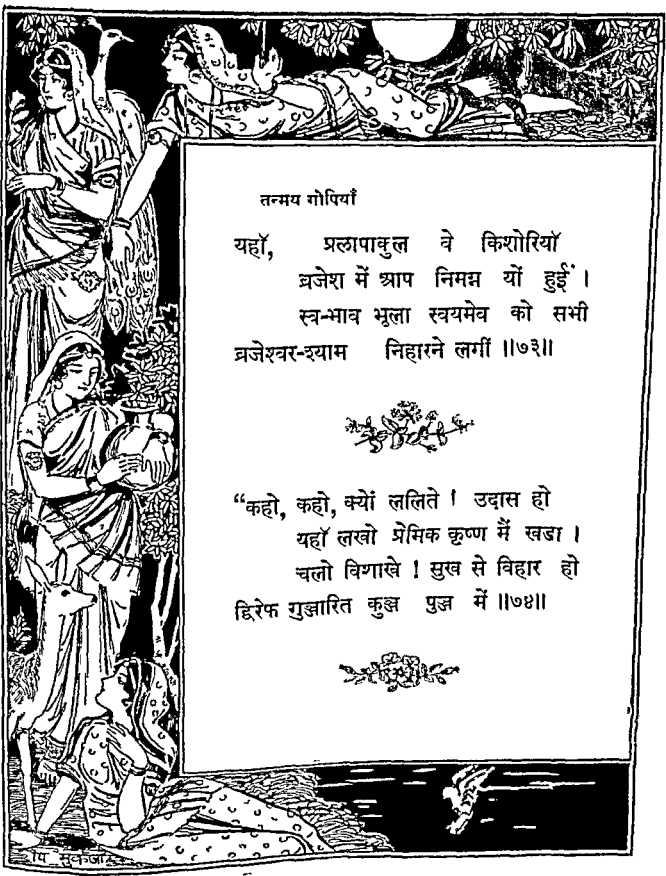 तन्मय गोपियाँ
यहाँ, प्रलापाकुल वे किशोरियाँ
व्रजेश में आप निमग्न यों हुईं ।
स्व-भाव भूला स्वयमेव को सभी
व्रजेश्वर-श्याम निहारने लगीं ॥७३॥
“कहो, कहो, क्यों ललिते ! उदास हो
यहाँ लखो प्रेमिक कृष्ण मैं खडा ।
चलो विशाखे ! सुख से विहार हो
द्विरेफ गुञ्जारित कुञ्ज पुञ्ज में ॥७४॥